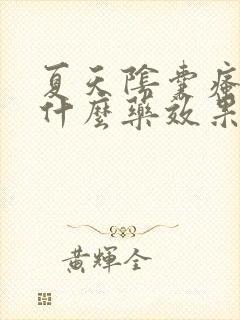 夏天陰囊瘙
什麼藥效果
黃輝全